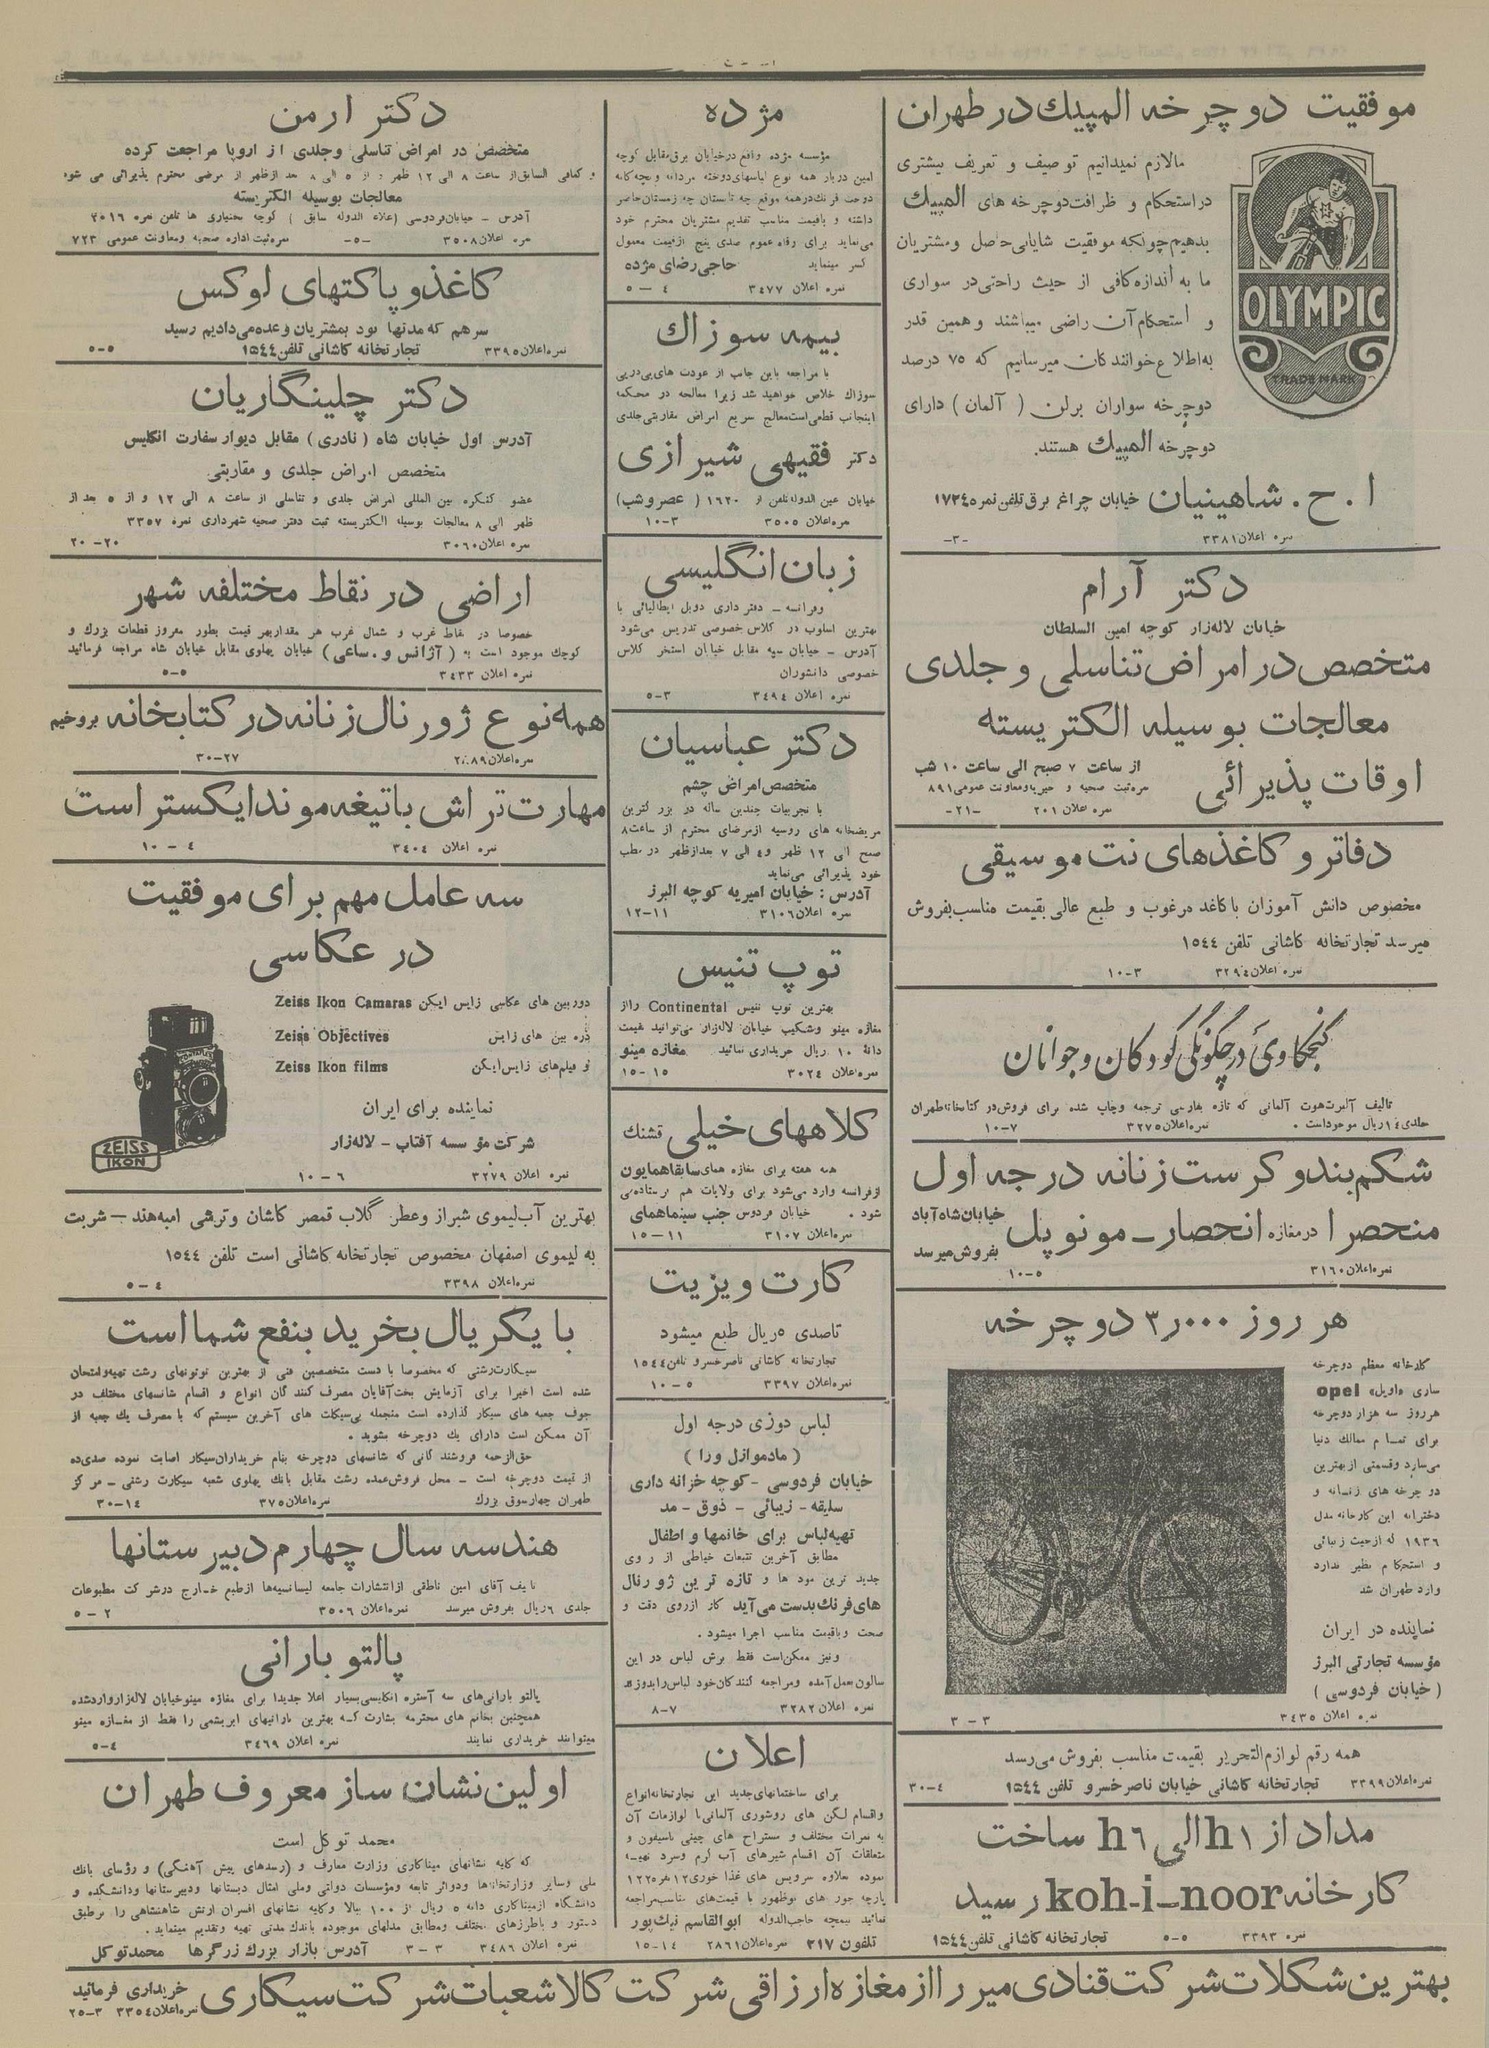 موفقیت دوچرخه المپیك در طهران
مالازم نمیدانیم توصیف و تعریف بیشتری
در استحکام و ظرافت دوچرخه های المپیك
بدهیم چونکه موفقیت شایانی حاصل و مشتریان
ما به اندازه کافی از حیث راحتی در سواری
و استحکام آن راضی میباشند و همین قدر
به اطلاع خوانندکان میرسانیم که ۷۵ درصد
دوچرخه سواران برلن ( آلمان ) دارای
دوچرخه المپیك هستند.
OLYMPIC
TRADE MARK
ا . ح . شاهینیان خیابان چراغ برق تلفن نمره ۱۷۲٤
نمره اعلان ۳۳۸۱ -۳-
دکتر آرام
خیابان لاله‌زار کوچه امین السلطان
متخصص در امراض تناسلی و جلدی
معالجات بوسیله الکتریسته
اوقات پذیرائی
از ساعت ۷ صبح الی ساعت ۱۰ شب
نمره ثبت صحیه و خیریه و معاونت عمومی ۸۹۱
نمره اعلان ۲۰۱ -۲۱-
دفاتر و کاغذهای نت موسیقی
مخصوص دانش آموزان با کاغذ مرغوب و طبع عالی بقیمت مناسب بفروش
میرسد تجارتخانه کاشانی تلفن ۱۵٤٤
نمره اعلان ۳۲۹٤ ۱۰-۳
کنجکاوی در چگونگی کودکان و جوانان
تالیف آلبرت هوت آلمانی که تازه بفارسی ترجمه و چاپ شده برای فروش در کتابخانه طهران
جلدی ۱٤ ریال موجود است . نمره اعلان ۳۲۷۵ ۱۰-۷
شکم بند و کرست زنانه درجه اول
منحصرا در مغازه انحصار - مونوپل خیابان شاه آباد بفروش میرسد
نمره اعلان ۳۱۶۰ ۱۰-۵
هر روز ۳٫۰۰۰ دوچرخه
کارخانه معظم دوچرخه
سازی «اوپل» opel
هر روز سه هزار دوچرخه
برای تمام ممالك دنیا
می‌سازد و قسمتی از بهترین
دوچرخه های زنانه و
دخترانه این کارخانه مدل
۱۹۳۶ که از حیث زیبائی
و استحکام نظیر ندارد
وارد طهران شد
نماینده در ایران
مؤسسه تجارتی البرز
( خیابان فردوسی )
نمره اعلان ۳٤۳۵ ۳-۳
همه رقم لوازم التحریر بقیمت مناسب بفروش می‌رسد
نمره اعلان ۳۳۹۹ تجارتخانه کاشانی خیابان ناصرخسرو تلفن ۱۵٤٤ ۳۰-٤
مداد از h۱ الی h۶ ساخت
کارخانه koh-i-noor رسید
نمره ۳۳۹۳ تجارتخانه کاشانی تلفن ۱۵٤٤ ۵-۵
مژده
مؤسسه مژده واقع در خیابان برق مقابل کوچه
امین دربار همه نوع لباسهای دوخته مردانه و بچه‌گانه
دوخت فرنك در همه موقع چه تابستان چه زمستان حاضر
داشته و باقیمت مناسب تقدیم مشتریان محترم خود
می‌نماید برای رفاه عموم صدی پنج از قیمت معمول
کسر مینماید حاجی رضای مژده
نمره اعلان ۳٤۷۷ ٤-۵
بیمه سوزاك
با مراجعه باین جانب از عودت های پی‌درپی
سوزاك خلاص خواهید شد زیرا معالجه در محکمه
اینجانب قطعی است معالج سریع امراض مقاربتی جلدی
دکتر فقیهی شیرازی
خیابان عین الدوله تلفن از ۱۶۲۰ ( عصر و شب )
نمره اعلان ۳۵۰۵ ۱۰-۳
زبان انگلیسی
و فرانسه - دفتر داری دوبل ایطالیائی با
بهترین اسلوب در کلاس خصوصی تدریس می‌شود
آدرس - خیابان سپه مقابل خیابان استخر کلاس
خصوصی دانشوران
نمره اعلان ۳٤۹٤ ۵-۳
دکتر عباسیان
متخصص امراض چشم
با تجربیات چندین ساله در بزرگترین
مریضخانه های روسیه از مرضای محترم از ساعت ۸
صبح الی ۱۲ ظهر و ٤ الی ۷ بعد از ظهر در مطب
خود پذیرائی می‌نماید
آدرس : خیابان امیریه کوچه البرز
نمره اعلان ۳۱۰۶ ۱۲-۱۱
توپ تنیس
بهترین توپ تنیس Continental را از
مغازه مینو و شکیب خیابان لاله‌زار می‌توانید بقیمت
دانهٔ ۱۰ ریال خریداری نمائید مغازه مینو
نمره اعلان ۳۰۲٤ ۱۵-۱۵
کلاههای خیلی قشنك
همه هفته برای مغازه همای سابقا همایون
از فرانسه وارد می‌شود برای ولایات هم فرستاده می
شود . خیابان فردوس جنب سینما همای
نمره اعلان ۳۱۰۷ ۱۵-۱۱
کارت ویزیت
تا صدی ۵ ریال طبع میشود
تجارتخانه کاشانی ناصرخسرو تلفن ۱۵٤٤
نمره اعلان ۳۳۹۷ ۱۰-۵
لباس دوزی درجه اول
( مادموازل ورا )
خیابان فردوسی - کوچه خزانه داری
سلیقه - زیبائی - ذوق - مد
تهیه لباس برای خانمها و اطفال
مطابق آخرین تتبعات خیاطی از روی
جدید ترین مود ها و تازه ترین ژورنال
های فرنك بدست می‌آید کار از روی دقت و
صحت و باقیمت مناسب اجرا میشود .
و نیز ممکن است فقط برش لباس در این
سالون بعمل آمده و مراجعه کنندکان خود لباس را بدوزند
نمره اعلان ۳۲۸۲ ۸-۷
اعلان
برای ساختمانهای جدید این تجارتخانه انواع
و اقسام لگن های روشوری آلمانی با لوازمات آن
به نمرات مختلف و مستراح های چینی باسیفون و
متعلقات آن اقسام شیرهای آب گرم و سرد تهیه
نموده بعلاوه سرویس های غذا خوری
پارچه جور های نوظهور با قیمت‌های مناسب مراجعه
نمائید تیمچه حاجب‌الدوله ابوالقاسم نیك‌پور
تلفون ۳۱۷ نمره اعلان ۲۸۶۱ ۱۵-۱٤
دکتر ارمن
متخصص در امراض تناسلی و جلدی از اروپا مراجعت کرده
و کمافی السابق از ساعت ۸ الی ۱۲ ظهر و از ۵ الی ۸ بعد از ظهر از مرضی محترم پذیرائی می شود
معالجات بوسیله الکتریسته
آدرس - خیابان فردوسی (علاء الدوله سابق ) کوچه بختیاری ها تلفن نمره ۲۰۱۶
نمره اعلان ۳۵۰۸ -۵- نمره ثبت اداره صحیه و معاونت عمومی ۷۲۳
کاغذ و پاکتهای لوکس
سرهم که مدتها بود بمشتریان وعده می‌دادیم رسید
نمره اعلان ۳۳۹۵ تجارتخانه کاشانی تلفن ۱۵٤٤ ۵-۵
دکتر چلینگاریان
آدرس اول خیابان شاه (نادری) مقابل دیوار سفارت انگلیس
متخصص امراض جلدی و مقاربتی
عضو کنگره بین المللی امراض جلدی و تناسلی از ساعت ۸ الی ۱۲ و از ۵ بعد از
ظهر الی ۸ معالجات بوسیله الکتریسته ثبت دفتر صحیه شهرداری نمره ۳۳۵۷
نمره اعلان ۳۰۶۰ ۲۰-۲۰
اراضی در نقاط مختلفه شهر
خصوصا در نقاط غرب و شمال غرب هر مقدار بهر قیمت بطور مفروز قطعات بزرك و
کوچك موجود است به (آژانس و . ساعی) خیابان پهلوی مقابل خیابان شاه مراجعه فرمائید
نمره اعلان ۳٤۳۳ ۵-۵
همه نوع ژورنال زنانه در کتابخانه بروخیم
نمره اعلان ۲۸۸۹ ۳۰-۲۷
مهارت تراش باتیغه موند ایکستر است
نمره اعلان ۳٤۰٤ ٤-۱۰
سه عامل مهم برای موفقیت
در عکاسی
دوربین های عکاسی زایس ایکن Zeiss Ikon Camaras
ذره بین های زایس Zeiss Objectives
و فیلم‌های زایس ایکن Zeiss Ikon films
نماینده برای ایران
شرکت مؤسسه آفتاب - لاله‌زار
ZEISS IKON
نمره اعلان ۳۲۷۹ ۶-۱۰
بهترین آب لیموی شیراز و عطر گلاب قمصر کاشان و ترشی امبه هند - شربت
به لیموی اصفهان مخصوص تجارتخانه کاشانی است تلفن ۱۵٤٤
نمره اعلان ۳۳۹۸ ٤-۵
با یکریال بخرید بنفع شما است
سیگارت رشتی که مخصوصا با دست متخصصین فنی از بهترین توتونهای رشت تهیه و امتحان
شده است اخیرا برای آزمایش بخت آقایان مصرف کنندگان انواع و اقسام شانسهای مختلف در
جوف جعبه های سیگار گذارده است منجمله بی‌سیکلت های آخرین سیستم که با مصرف یك جعبه از
آن ممکن است دارای یك دوچرخه بشوید .
حق الزحمه فروشند گانی که شانسهای دوچرخه بنام خریداران سیگار اصابت نموده صدی ده
از قیمت دوچرخه است - محل فروش عمده رشت مقابل بانك پهلوی شعبه سیگارت رشتی - مرکز
طهران چهارسوق بزرك نمره اعلان ۳۷۵ ۳۰-۱٤
هندسه سال چهارم دبیرستانها
تالیف آقای امین ناطقی از انتشارات جامعه لیسانسیه‌ها از طبع خارج در شرکت مطبوعات
جلدی ۶ ریال بفروش میرسد نمره اعلان ۳۵۰۶ ۲-۵
پالتو بارانی
پالتو بارانی‌های سه آستره انگلیسی بسیار اعلا جدیدا برای مغازه مینو خیابان لاله‌زار وارد شده
همچنین بخانم های محترمه بشارت که بهترین بارانیهای ابریشمی را فقط از مغازه مینو
میتوانند خریداری نمایند نمره اعلان ۳٤۶۹ ۵-٤
اولین نشان ساز معروف طهران
محمد توکل است
که کلیه نشانهای میناکاری وزارت معارف و (رسدهای پیش آهنگی) و رؤسای بانك
ملی و سایر وزارتخانه‌ها و دوائر تابعه و مؤسسات دولتی و ملی امثال دبستانها و دبیرستانها و دانشکده و
دانشگاه از میناکاری دانه ۵ ریال از ۱۰۰ ببالا و کلیه نشانهای افسران ارتش شاهنشاهی را برطبق
دستور و باطرزهای مختلف و مطابق مدلهای موجوده باندك مدتی تهیه و تقدیم مینماید .
نمره اعلان ۳٤۸۶ ۳-۳ آدرس بازار بزرك زرگرها محمد توکل
بهترین شکلات شرکت قنادی میر را از مغازه ارزاقی شرکت کالا شعبات شرکت سیگاری خریداری فرمائید
نمره اعلان ۳۳۵٤ ۲۵-۳